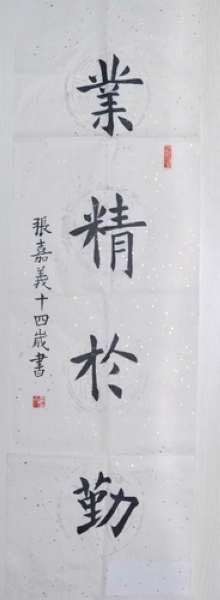 業精於勤
張嘉義十四歲書